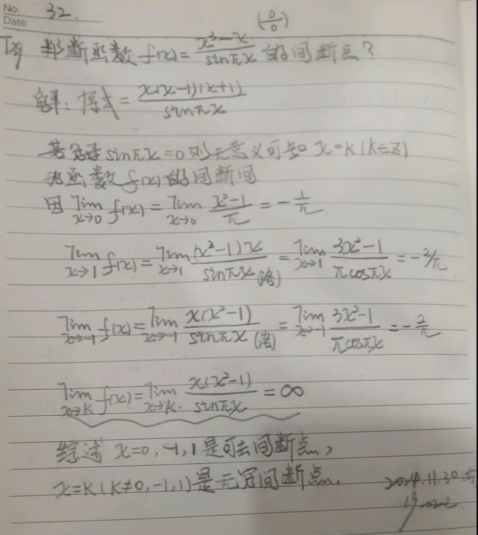 No. 32.
Date
(0/0)
例 判断函数 f(x)=\frac{x^3-x}{sinπx} 的间断点?
解: 原式=\frac{x(x-1)(x+1)}{sinπx}
若分母 sinπx=0 则无意义可知 x=k(k∈Z)
为函数 f(x) 的间断间
因 \lim_{x→0} f(x)=\lim_{x→0} \frac{x^2-1}{π}=-\frac{1}{π}
\lim_{x→1} f(x)=\lim_{x→1} \frac{(x^2-1)x}{sinπx}(洛)=\lim_{x→1} \frac{3x^2-1}{πcosπx}=-2/π
\lim_{x→-1} f(x)=\lim_{x→-1} \frac{x(x^2-1)}{sinπx}(洛)=\lim_{x→-1} \frac{3x^2-1}{πcosπx}=-\frac{2}{π}
\lim_{x→k} f(x)=\lim_{x→k} \frac{x(x^2-1)}{sinπx}=∞
综述 x=0,-1,1是可去间断点,
x=k(k≠0,-1,1)是无穷间断点.
2024.11.30